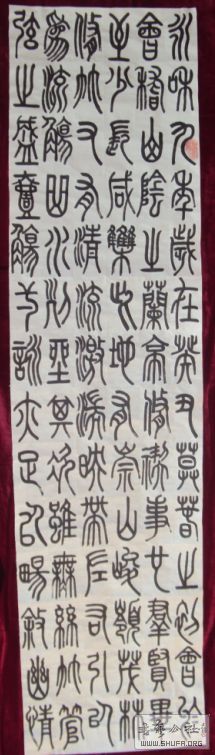 永和九年歲在癸丑莫春之初會於
會稽山陰之蘭亭修禊事也羣賢畢
至少長咸集此地有崇山峻嶺茂林
修竹又有清流激湍映帶左右引以
為流觴曲水列坐其次雖無絲竹管
弦之盛壹觴一詠亦足以暢敘幽情
WWW.SHUFA.ORG